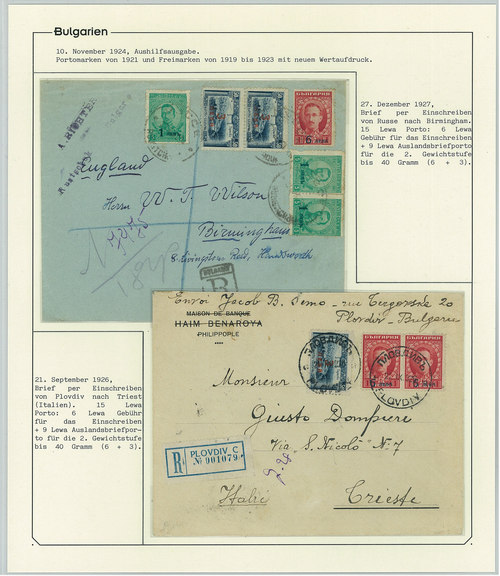 Bulgarien
10. November 1924, Aushilfsausgabe.
Portomarken von 1921 und Freimarken von 1919 bis 1923 mit neuem Wertaufdruck.
27. Dezember 1927,
Brief per Einschreiben
von Russe nach Birmingham.
15 Lewa Porto: 6 Lewa
Gebühr für das Einschreiben
+ 9 Lewa Auslandsbriefporto
für die 2. Gewichtstufe
bis 40 Gramm (6 + 3).
A RICHTER
Rustschuk
England
Herrn W. T. Wilson
Birmingham
8. Livingstone Road, Handsworth
R
Envoi Jacob B. Demo - rue
Plovdiv - Bulgarie
MAISON DE BANQUE
HAIM BENAROYA
PHILIPPOPLE
21. September 1926,
Brief per Einschreiben
von Plovdiv nach Triest
(Italien). 15 Lewa
Porto: 6 Lewa Gebühr
für das Einschreiben
+ 9 Lewa Auslandsbriefpor-
to für die 2. Gewichtstufe
bis 40 Gramm (6 + 3).
ПЛОВДИВЪ
PLOVDIV
Monsieur
Giusto Dompiere
Via "S. Nicolò" № 7
R PLOVDIV C
№ 001079
Italie
Trieste